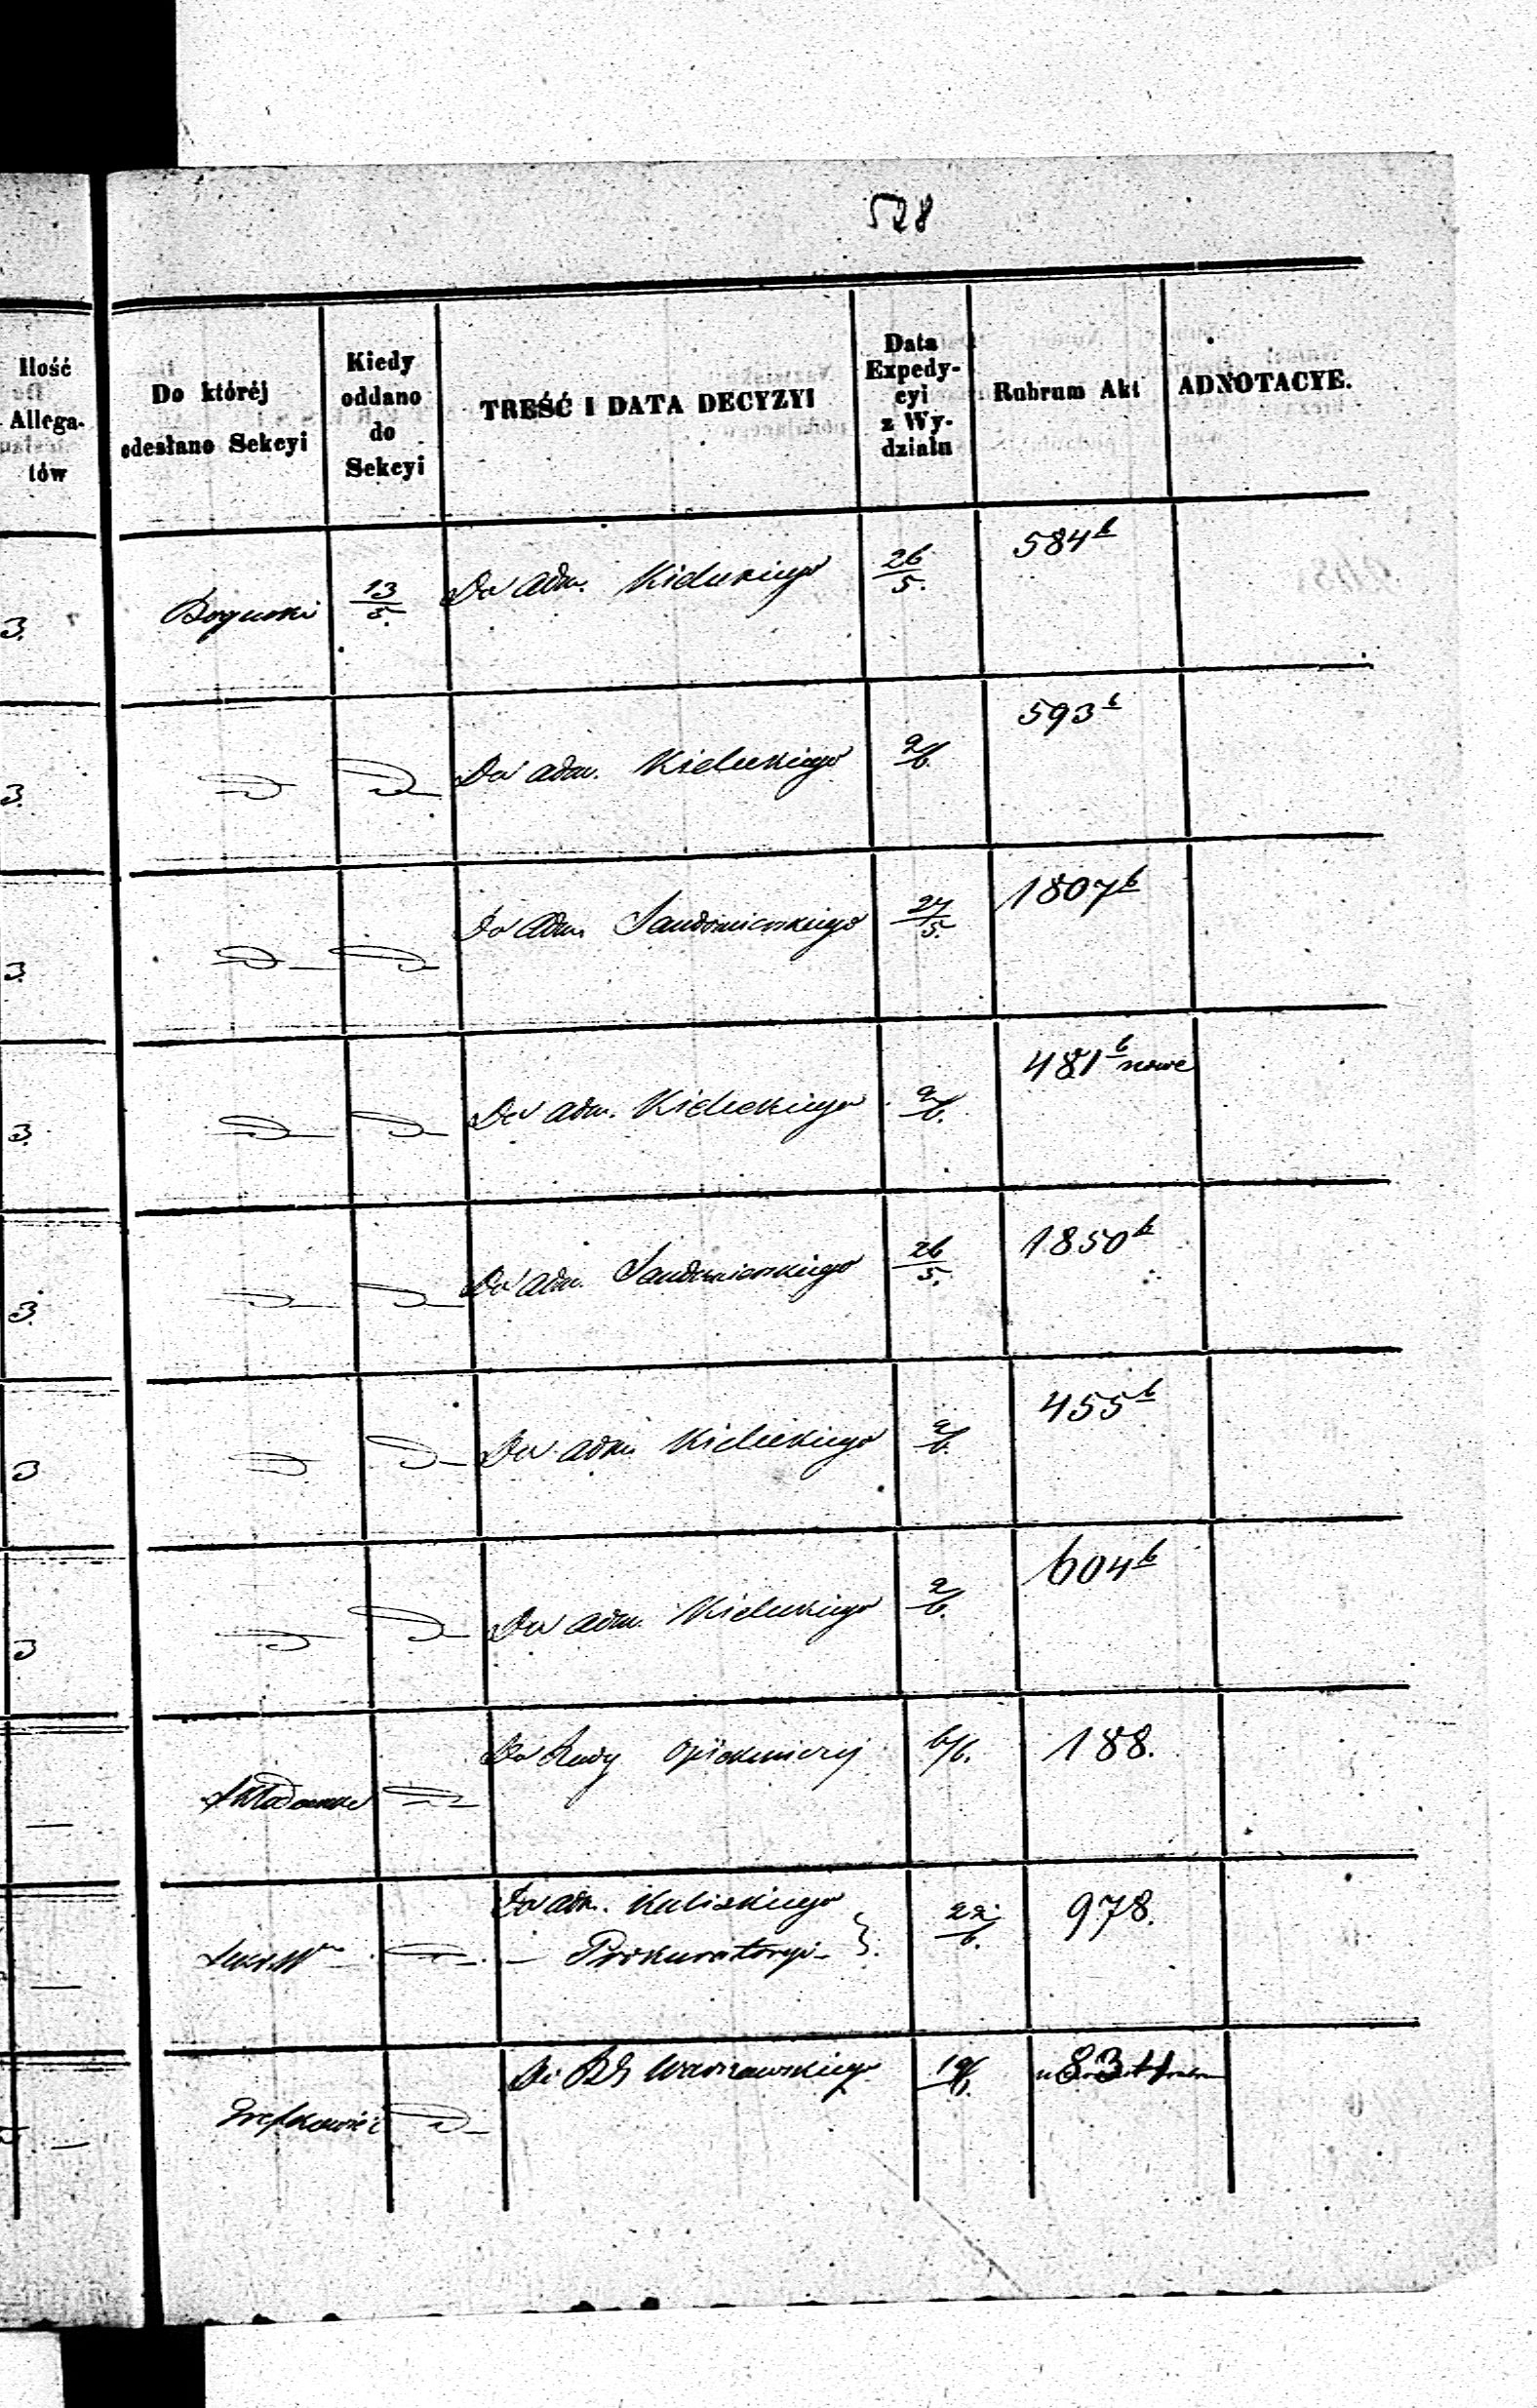 528
Ilość Allega- tów
Do któréj odesłano Sekcyi
Kiedy oddano do Sekcyi
TREŚĆ I DATA DECYZYI
Data Expedy- cyi z Wy- działu
Rubrum Akt
ADNOTACYE.
3. Boguski 13/5. Do Adm. Kieleckiego 26/5. 584 b
3. D D Do adm. Kieleckiego 2/6. 593 b
3. D D Do Adm Sandomierskiego 27/5. 1807 b
3. D D Do adm. Kieleckiego 2/6. 481 b nowe
3. D D Do adm. Sandomierskiego 26/5. 1850 b
3 D D Do adm Kieleckiego 2/6. 455 b
3 D D Do adm. Kieleckiego 2/6. 604 b
— D Do Rady Opiekuńczej 6/6. 188.
— D Do adm. Kaliskiego 22/6. 978.
— Prokuratoryi - }.
— D Do RG Warszawskiego 19/6. 834